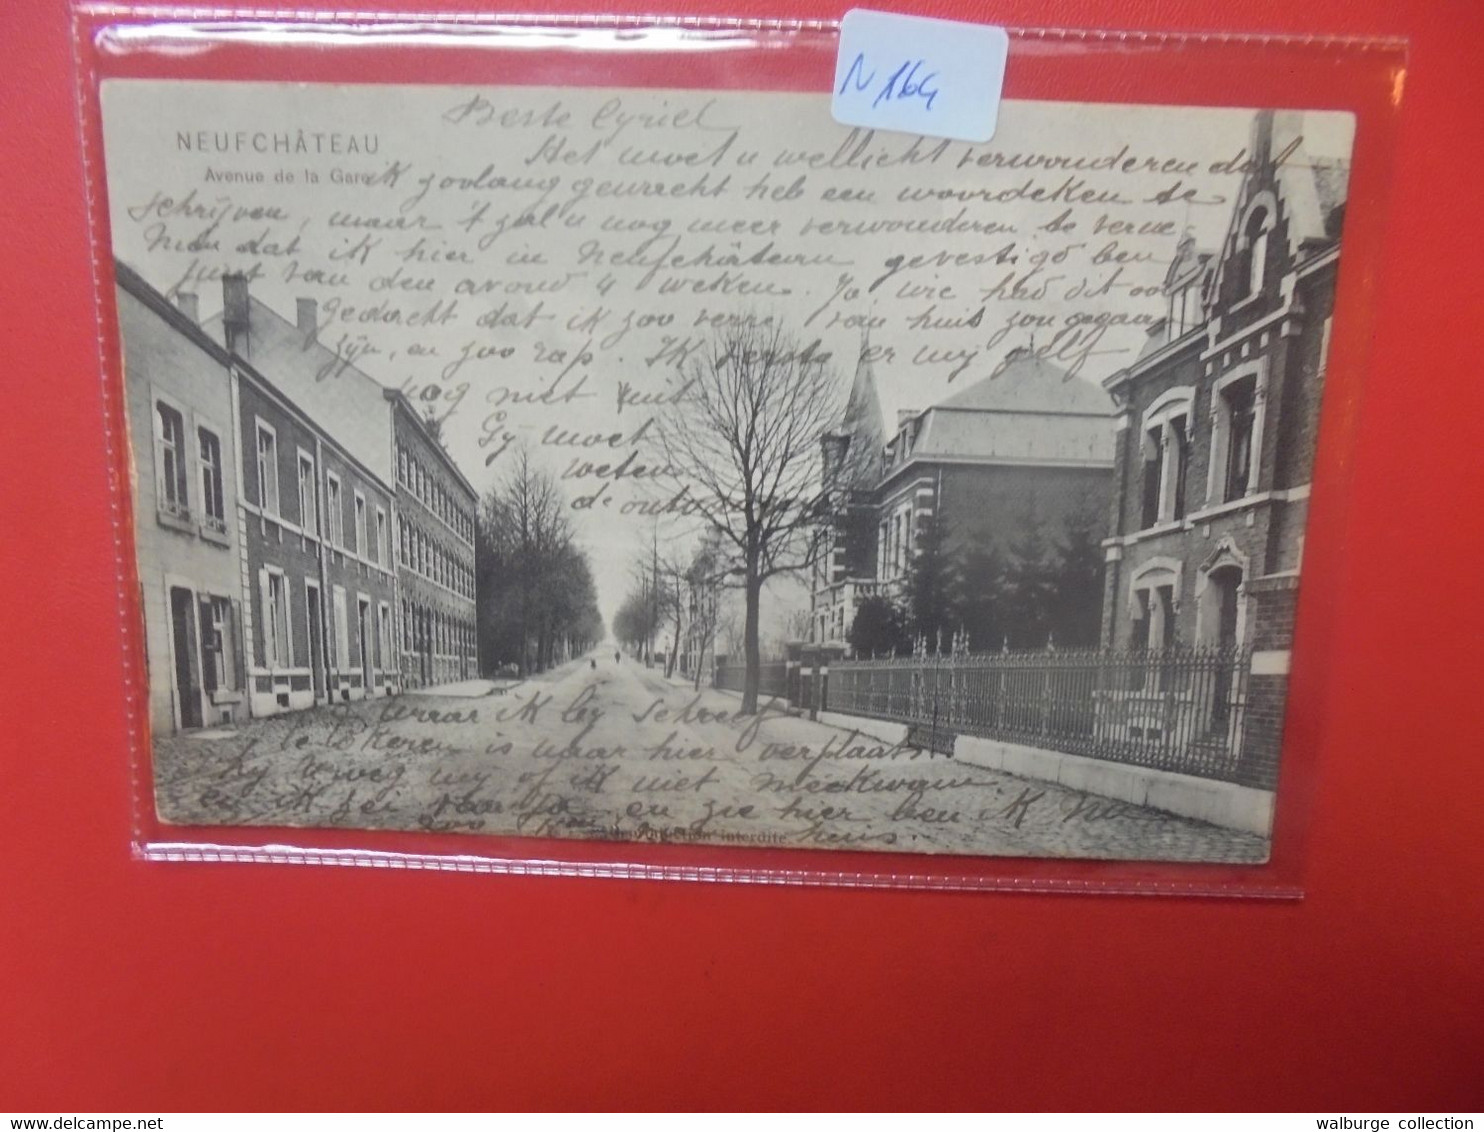 N 164
NEUFCHÂTEAU
Avenue de la Gare
Beste Cyriel
Het moet u wellicht verwonderen dat
ik zoolang gewacht heb een woordeken te
schrijven, maar 't zal u nog meer verwonderen te verne-
men dat ik hier in Neufchâteau gevestigd ben
juist van den avond 4 weken. Ja, wie had dit ooit
gedacht dat ik zoo verre van huis zou gegaan
zijn, en zoo rap. Ik verste er mij zelf
nog niet uit
Gy moet
weten
de
waar ik by schreef
is naar hier verplaatst.
Hy vroeg my of ik niet meekwam
en ik zei van ja, en zie hier ben ik nu
zoo van huis.
Reproduction interdite
delcampe.net
walburge collection